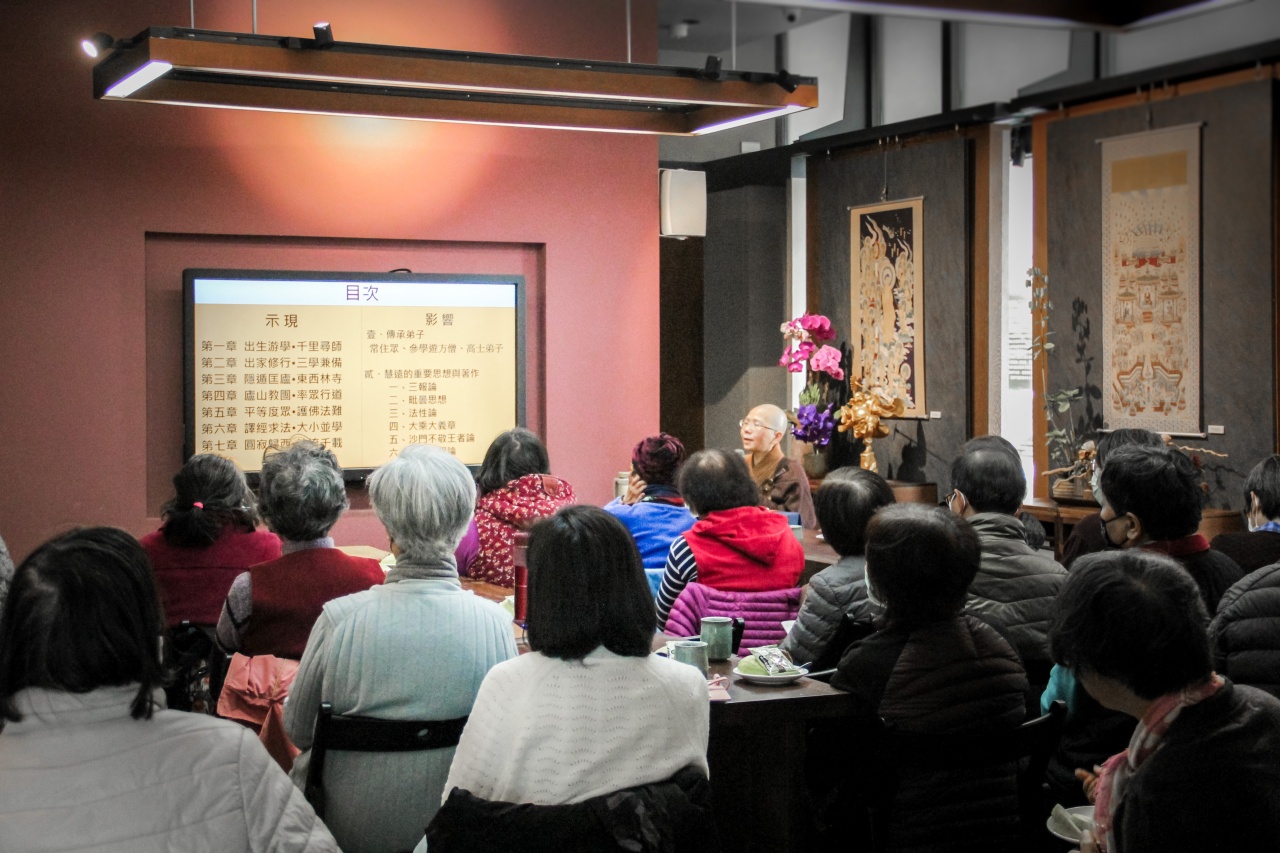 目次
示現
第一章 出生游學•千里尋師
第二章 出家修行•三學兼備
第三章 隱遁匡廬•東西林寺
第四章 廬山教團•率眾行道
第五章 平等度眾•護佛法難
第六章 譯經求法•大小並學
第七章 圓寂歸西 千載
影響
壹、傳承弟子
常住眾、參學遊方僧、高士弟子
貳、慧遠的重要思想與著作
一、三報論
二、毗曇思想
三、法性論
四、大乘大義章
五、沙門不敬王者論
六